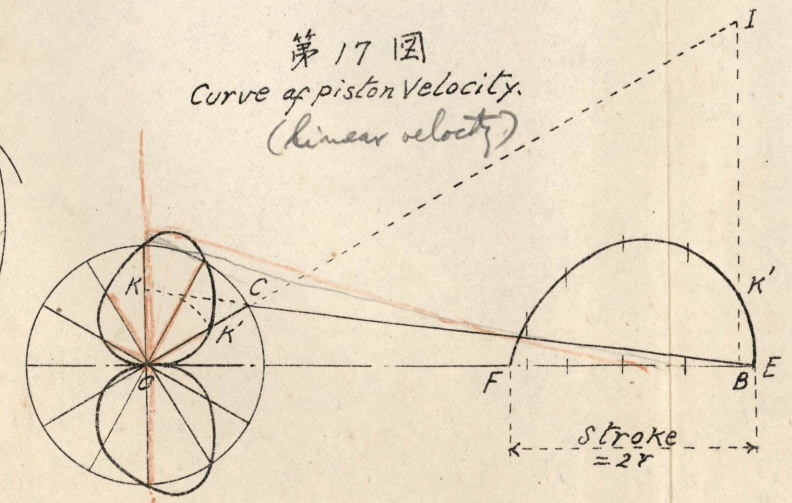 第17図
Curve of piston Velocity.
(linear velocity)
I
K
C
K
K'
O
F
B
E
Stroke
=2r